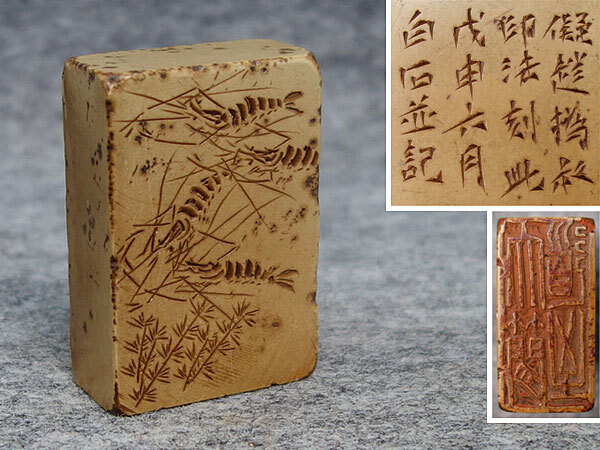 儗趙撝叔
印法刻此
戊申六月
白石並記